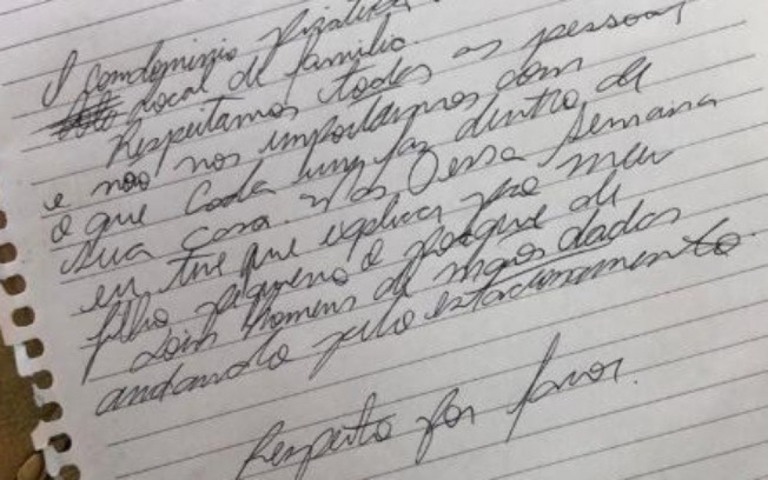 O condominio
local de familia.
Respeitamos todas as pessoas
e nao nos importarmos com
o que cada um faz dentro de
sua casa. Mas essa semana
eu tive que explicar pro meu
filho pequeno o porque de
dois homens de maos dadas
andando pelo estacionamento.
Respeito por favor.